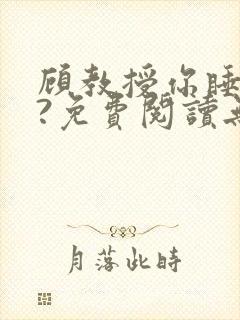 顧教授你睡
?免費閱讀
月落此時